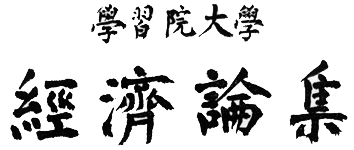 學習院大學
經濟論集